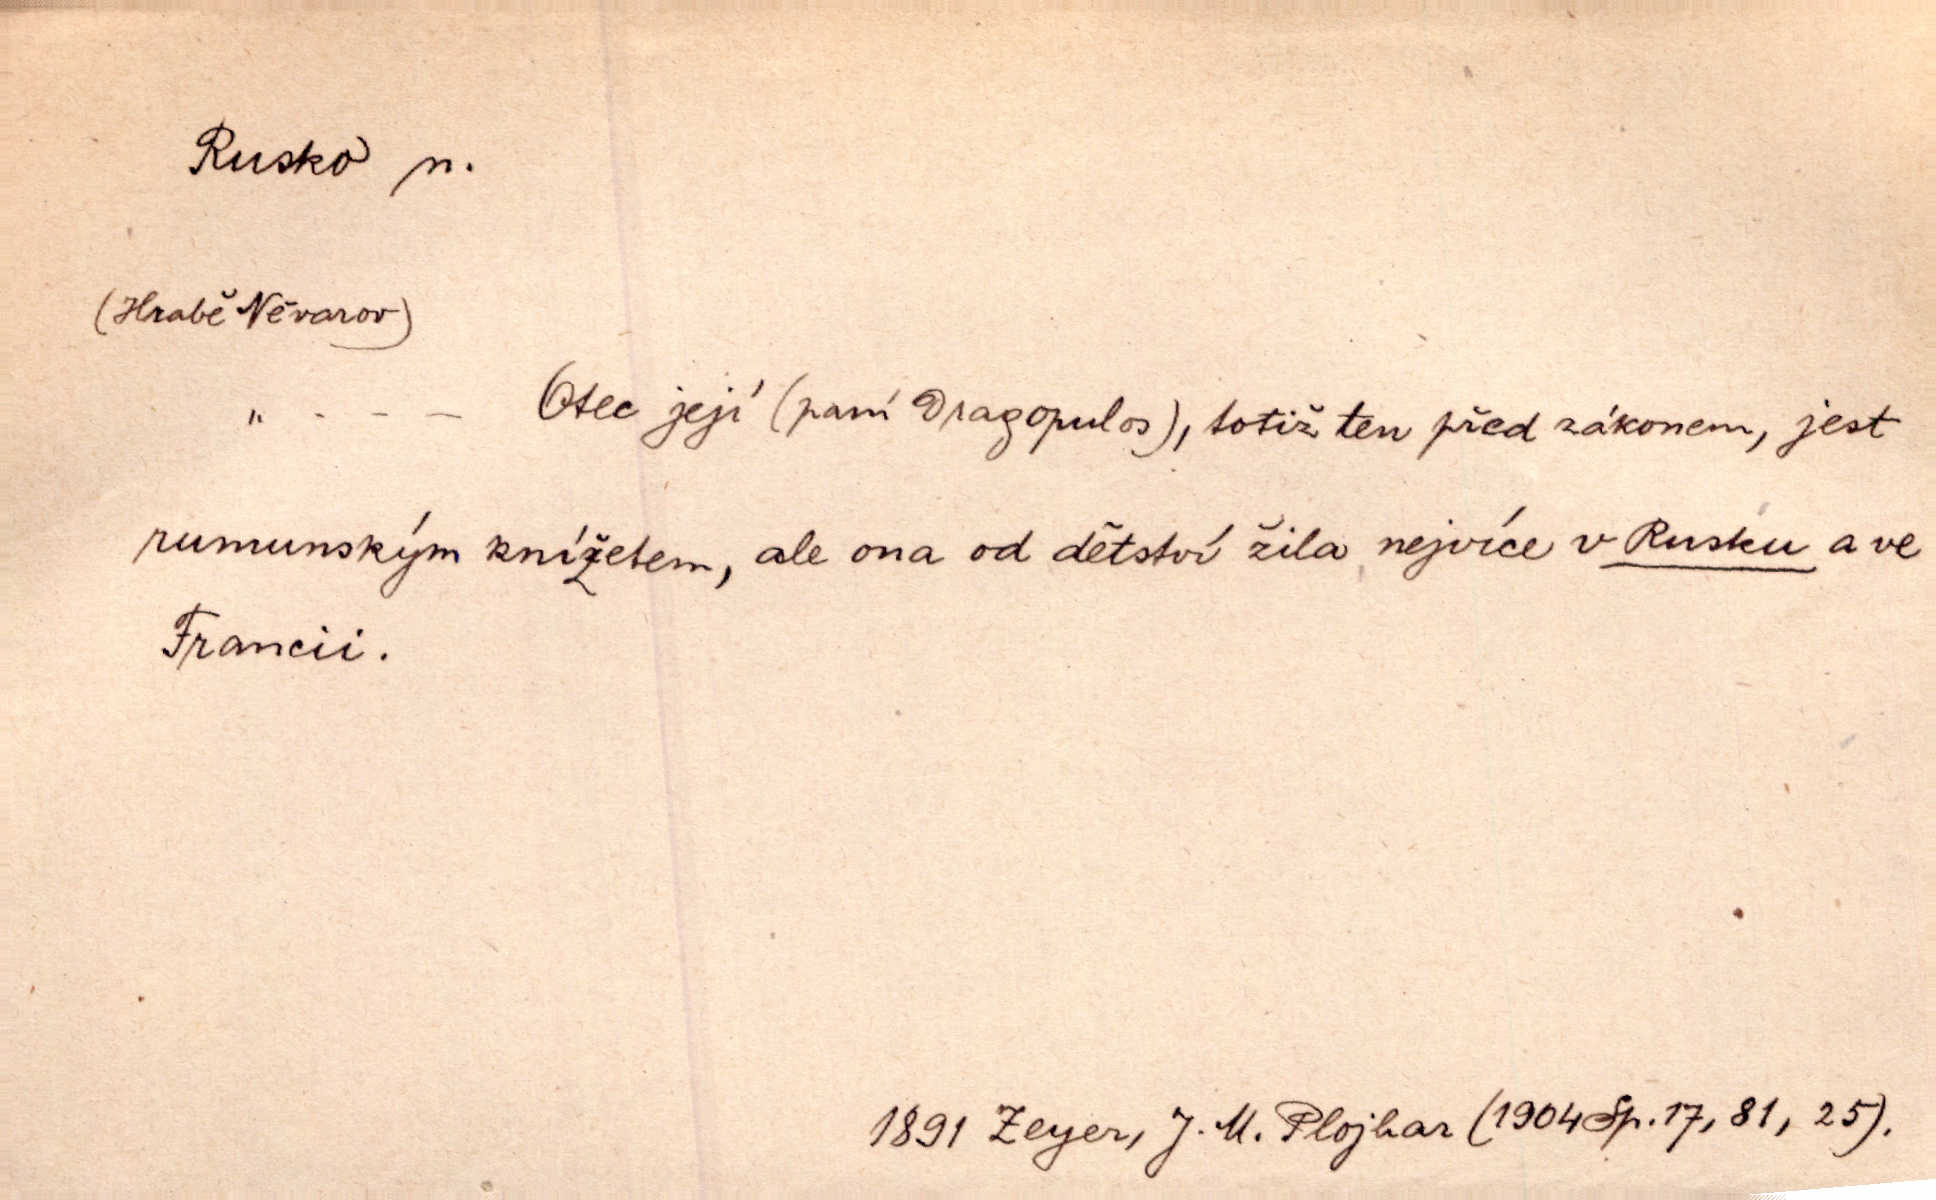 Rusko n.
(Hrabě Něvarov)
„ - - - Otec její (paní Dragopulos), totiž ten před zákonem, jest
rumunským knížetem, ale ona od dětství žila nejvíce v Rusku a ve
Francii.
1891 Zeyer, J. M. Plojhar (1904 Sp. 17, 81, 25).